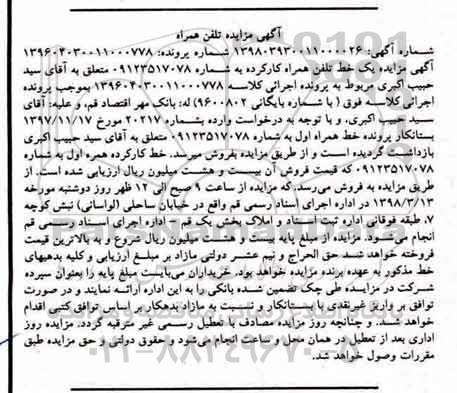 آگهی مزایده تلفن همراه
شماره آگهی: ۱۳۹۸۰۳۹۳۰۰۱۱۰۰۰۰۲۶ شماره پرونده: ۱۳۹۶۰۴۰۳۰۰۱۱۰۰۰۷۷۸
آگهی مزایده یک خط تلفن همراه کارکرده به شماره ۰۹۱۲۳۵۱۷۰۷۸ متعلق به آقای سید
حبیب اکبری مربوط به پرونده اجرائی کلاسه ۱۳۹۶۰۴۰۳۰۰۱۱۰۰۰۷۷۸ بموجب پرونده
اجرائی کلاسه فوق ( با شماره بایگانی ۹۶۰۰۸۰۲) له: بانک مهر اقتصاد قم، و علیه: آقای
سید حبیب اکبری، و با توجه به درخواست وارده بشماره ۲۰۲۱۷ مورخ ۱۳۹۷/۱۱/۱۷
بستانکار پرونده خط همراه اول به شماره ۰۹۱۲۳۵۱۷۰۷۸ متعلق به آقای سید حبیب اکبری
بازداشت گردیده است و از طریق مزایده بفروش میرسد. خط کارکرده همره اول به شماره
۰۹۱۲۳۵۱۷۰۷۸ که قیمت فروش آن بیست و هشت میلیون ریال ارزیابی شده است. از
طریق مزایده به فروش می‌رسد که مزایده از ساعت ۹ صبح الی ۱۲ ظهر روز دوشنبه مورخه
۱۳۹۸/۳/۱۳ در اداره اجرای اسناد رسمی قم واقع در خیابان ساحلی (لواسانی) نبش کوچه
۷. طبقه فوقانی اداره ثبت اسناد و املاک بخش یک قم – اداره اجرای اسناد رسمی قم
انجام می‌شود. مزایده از مبلغ پایه بیست و هشت میلیون ریال شروع و به بالاترین قیمت
فروخته خواهد شد حق الحراج و نیم عشر دولتی مازاد بر مبلغ ارزیابی و کلیه بدهیهای
خط مذکور به عهده برنده مزایده خواهد بود. خریداران می‌بایست مبلغ پایه را بعنوان سپرده
شرکت در مزایده طی چک تضمین شده بانکی را به این اداره ارائه نمایند و در صورت
توافق بر واریز غیرنقدی با بستانکار و نسبت به مازاد بدهکار بر اساس توافق کتبی اقدام
خواهد شد. و چنانچه روز مزایده مصادف با تعطیل رسمی غیر مترقبه گردد. مزایده روز
اداری بعد از تعطیل در همان محل و ساعت انجام می‌شود و حقوق دولتی و حق مزایده طبق
مقررات وصول خواهد شد.
۰۲۱-۸۸۳۴۹۶۷۰